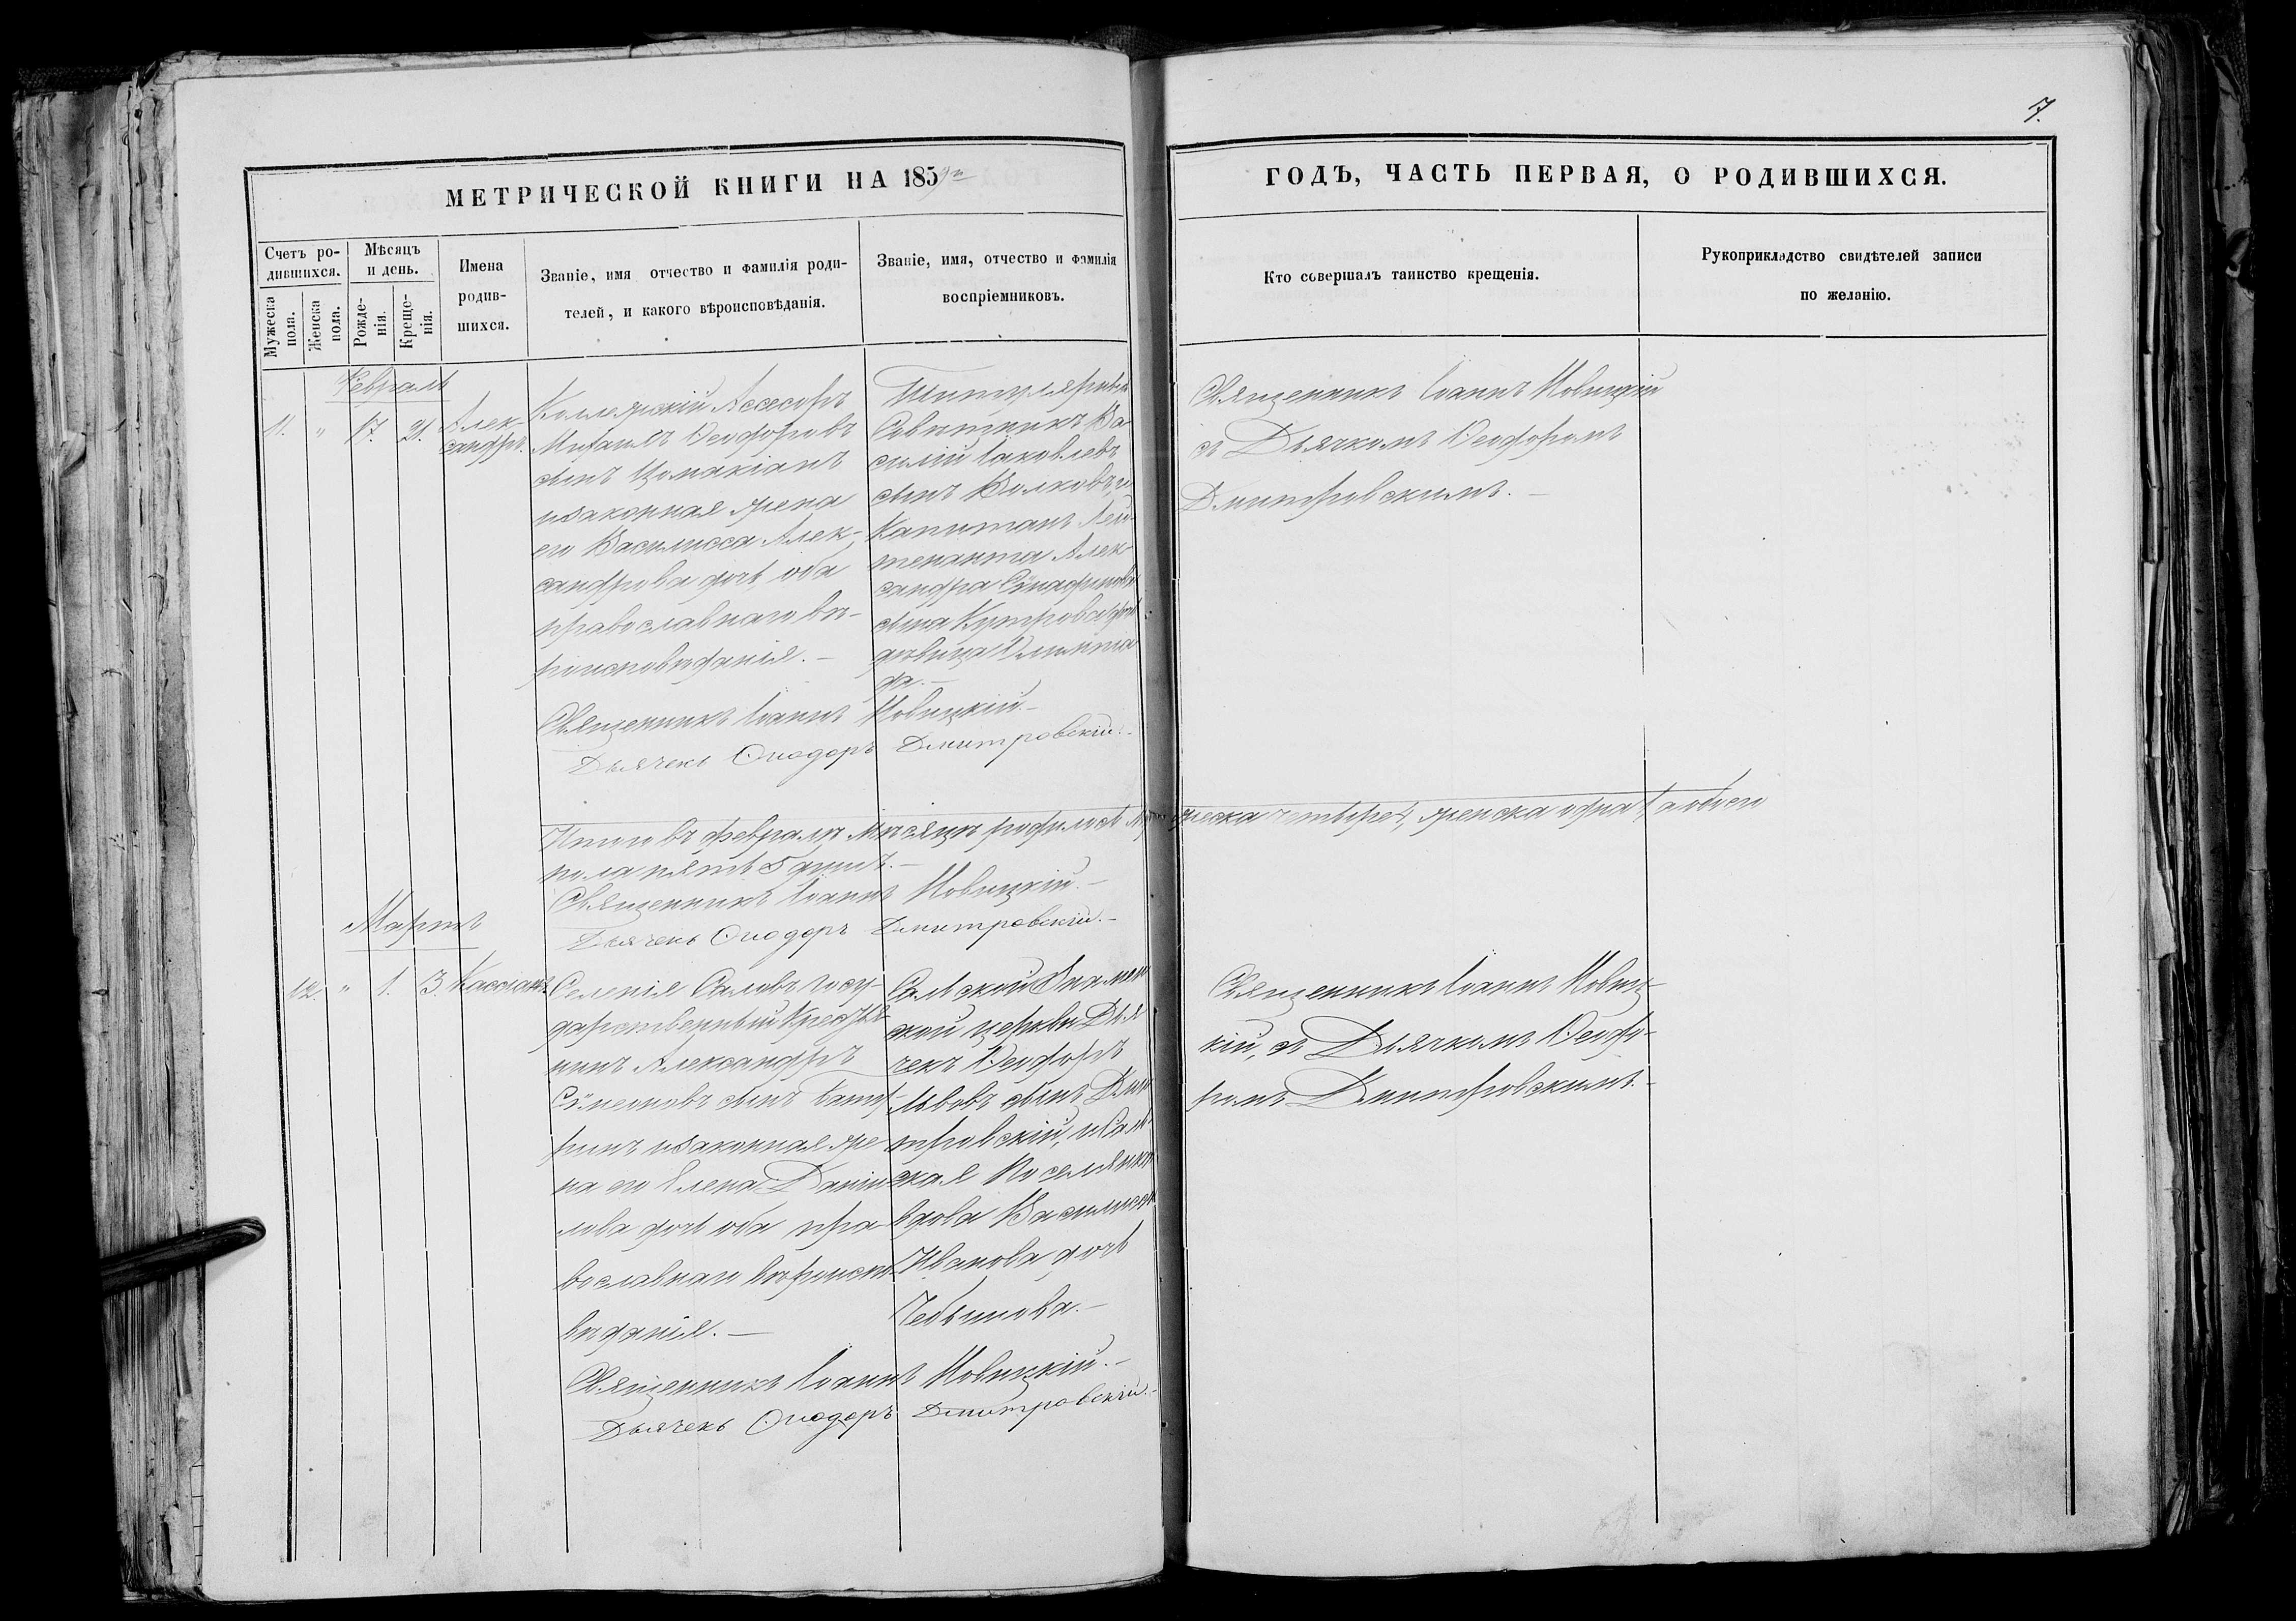 7.
МЕТРИЧЕСКОЙ КНИГИ НА 1859го
ГОДЪ, ЧАСТЬ ПЕРВАЯ, О РОДИВШИХСЯ.
Счетъ ро-
дившихся.
Мужеска пола.
Женска пола.
Мѣсяцъ
и день.
Рожде-
нія.
Креще-
нія.
Имена
родив-
шихся.
Званіе, имя отчество и фамилія роди-
телей, и какого вѣроисповѣданія.
Званіе, имя, отчество и фамилія
воспріемниковъ.
Кто совершалъ таинство крещенія.
Рукоприкладство свидѣтелей записи
по желанію.
Февраль
11. " 17. 21.
Алек-
сандръ.
Коллежскій Ассесоръ
Михаилъ Ѳеодоровъ
сынъ Цомакіанъ
и законная жена
его Василисса Алек-
сандрова дочь, оба
православнаго вѣ-
роисповѣданія.
Титулярный
Совѣтникъ Ва
силій Іаковлевъ
сынъ Волковъ, и
Капитанъ Лей-
тенанта Алек
сандра
сына Кутрова дочь
дѣвица Олимпіа
да.
Священникъ Іоаннъ Новицкій
съ Дьячкомъ Ѳеодоромъ
Дмитровскимъ.
Священникъ Іоаннъ Новицкій.
Дьячекъ Ѳиодоръ Дмитровскій.
Итого въ февралѣ мѣсяцѣ родилось мужеска четыре 4, женска одна 1, а обоего
пола пять 5 душъ.
Священникъ Іоаннъ Новицкій.
Дьячекъ Ѳиодоръ Дмитровскій.
Мартъ
12. " 1. 3. Кассіанъ
Селенія Саловъ госу-
дарственный Кресть-
нинъ Александръ
Сѷмеоновъ сынъ
и законная же
на его Елена Даніи
лова дочь оба пра
вославнаго вѣроиспо-
вѣданія.
Знамен
ской церкви Дья
чекъ Ѳеодоръ
Львовъ сынъ Дми
тровскій, и
ская Поселянка
вдова Василисса
Иванова дочь
Священникъ Іоаннъ Новиц-
кій, съ Дьячкомъ Ѳеодо-
ромъ Дмитровскимъ.
Священникъ Іоаннъ Новицкій.
Дьячекъ Ѳиодоръ Дмитровскій.